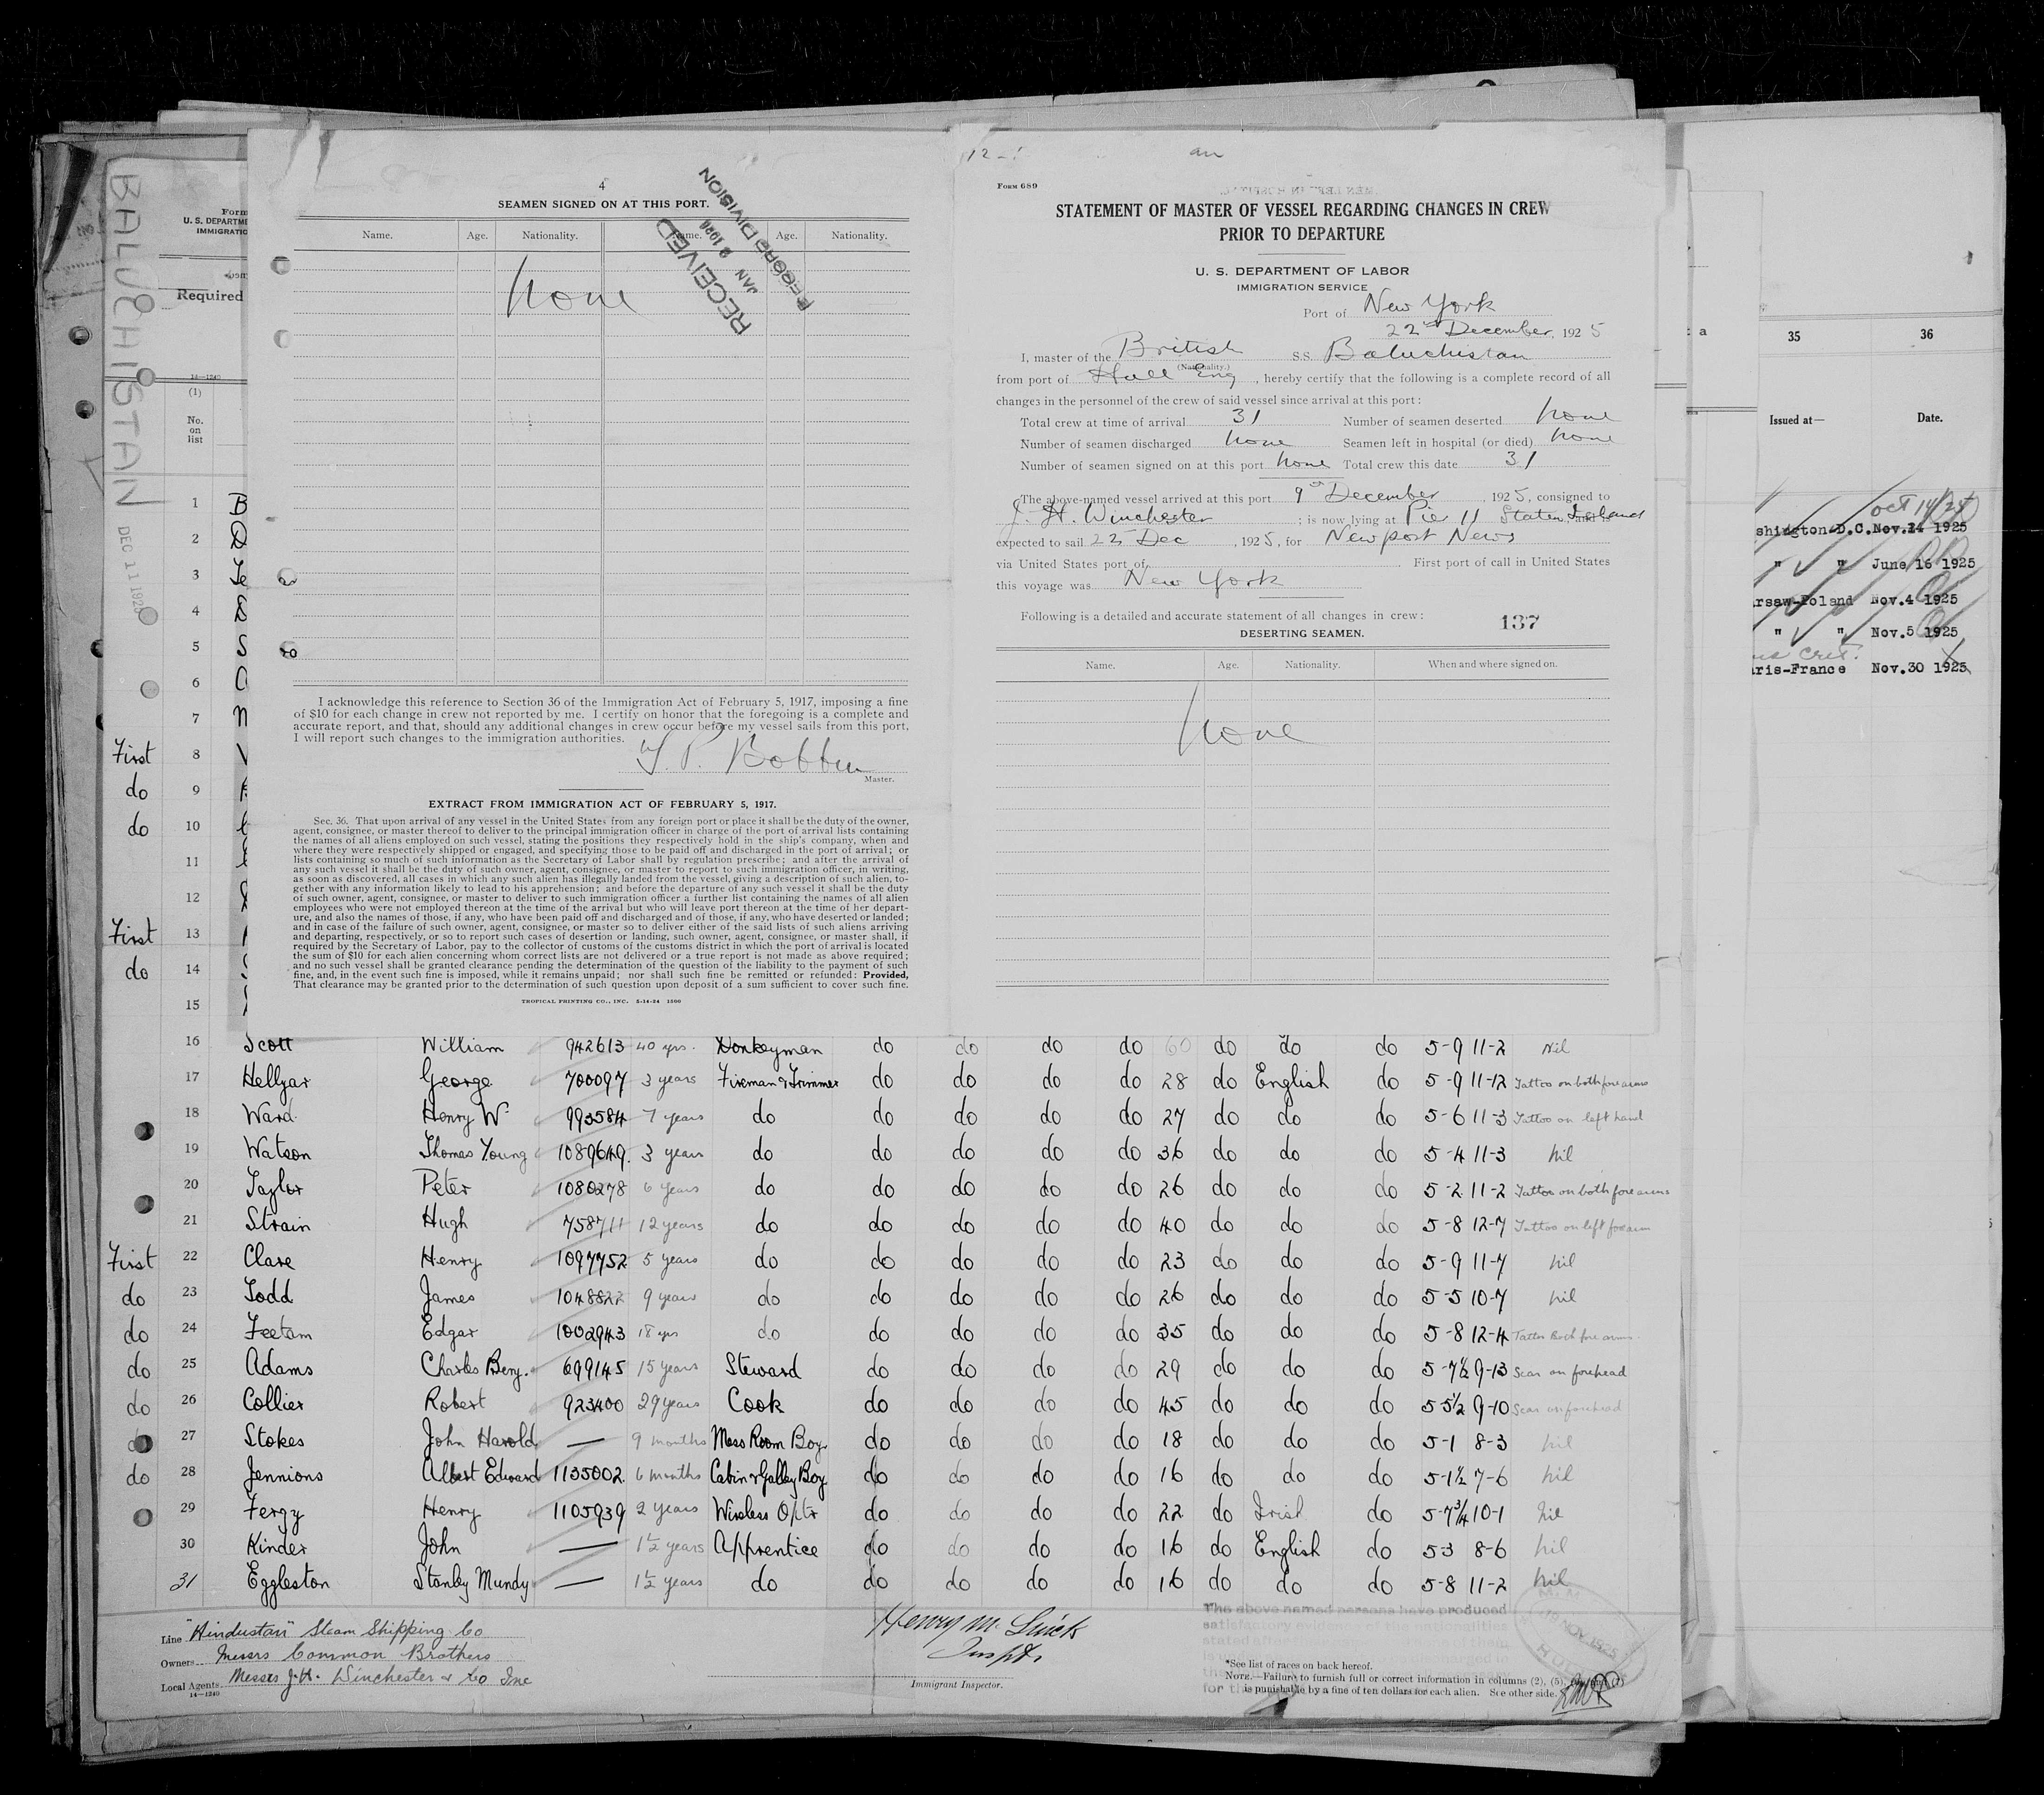 4
SEAMEN SIGNED ON AT THIS PORT.
Name. Age. Nationality. Name. Age. Nationality.
None
RECEIVED
JAN 2 1926
RECORD DIVISION
I acknowledge this reference to Section 36 of the Immigration Act of February 5, 1917, imposing a fine
of $10 for each change in crew not reported by me. I certify on honor that the foregoing is a complete and
accurate report, and that, should any additional changes in crew occur before my vessel sails from this port,
I will report such changes to the immigration authorities.
Master.
EXTRACT FROM IMMIGRATION ACT OF FEBRUARY 5, 1917.
Sec. 36. That upon arrival of any vessel in the United States from any foreign port or place it shall be the duty of the owner,
agent, consignee, or master thereof to deliver to the principal immigration officer in charge of the port of arrival lists containing
the names of all aliens employed on such vessel, stating the positions they respectively hold in the ship's company, when and
where they were respectively shipped or engaged, and specifying those to be paid off and discharged in the port of arrival; or
lists containing so much of such information as the Secretary of Labor shall by regulation prescribe; and after the arrival of
any such vessel it shall be the duty of such owner, agent, consignee, or master to report to such immigration officer, in writing,
as soon as discovered, all cases in which any such alien has illegally landed from the vessel, giving a description of such alien, to-
gether with any information likely to lead to his apprehension; and before the departure of any such vessel it shall be the duty
of such owner, agent, consignee, or master to deliver to such immigration officer a further list containing the names of all alien
employees who were not employed thereon at the time of the arrival but who will leave port thereon at the time of her depart-
ure, and also the names of those, if any, who have been paid off and discharged and of those, if any, who have deserted or landed;
and in case of the failure of such owner, agent, consignee, or master so to deliver either of the said lists of such aliens arriving
and departing, respectively, or so to report such cases of desertion or landing, such owner, agent, consignee, or master shall, if
required by the Secretary of Labor, pay to the collector of customs of the customs district in which the port of arrival is located
the sum of $10 for each alien concerning whom correct lists are not delivered or a true report is not made as above required;
and no such vessel shall be granted clearance pending the determination of the question of the liability to the payment of such
fine, and, in the event such fine is imposed, while it remains unpaid; nor shall such fine be remitted or refunded: Provided,
That clearance may be granted prior to the determination of such question upon deposit of a sum sufficient to cover such fine.
TROPICAL PRINTING CO., INC. 5-14-24 1500
Form 689
STATEMENT OF MASTER OF VESSEL REGARDING CHANGES IN CREW
PRIOR TO DEPARTURE
U. S. DEPARTMENT OF LABOR
IMMIGRATION SERVICE
Port of New York
22nd December, 1925
I, master of the British SS. Baluchistan
(Nationality.)
from port of Hull Eng, hereby certify that the following is a complete record of all
changes in the personnel of the crew of said vessel since arrival at this port:
Total crew at time of arrival 31 Number of seamen deserted None
Number of seamen discharged None Seamen left in hospital (or died) None
Number of seamen signed on at this port None Total crew this date 31
The above-named vessel arrived at this port 9th December, 1925, consigned to
J. H. Winchester; is now lying at Pier 11 Staten Island and is
expected to sail 22 Dec, 1925, for Newport News
via United States port of First port of call in United States
this voyage was New York
Following is a detailed and accurate statement of all changes in crew:
137
DESERTING SEAMEN.
Name. Age. Nationality. When and where signed on.
None
BALUCHISTAN
DEC 11 192
Form
U. S. DEPARTME
IMMIGRATIC
Required
14-1240
(1)
No. on list
1 B
2 D
3
4
5 S
6
7
First 8
do 9
do 10
11
12
First 13
do 14
15
16 Scott William 942613 40 yrs. Donkeyman do do do do 60 do do do 5-9 11-2 Nil
17 Hellyar George 700097 3 years Fireman & Trimmer do do do do 28 do English do 5-9 11-12 Tattoo on both forearms
18 Ward Henry W 993584 7 years do do do do do 27 do do do 5-6 11-3 Tattoo on left hand
19 Watson Thomas Young 1089649. 3 years do do do do do 36 do do do 5-4 11-3 Nil
20 Taylor Peter 1080278 6 years do do do do do 26 do do do 5-2 11-2 Tattoo on both forearms
21 Strain Hugh 758711 12 years do do do do do 40 do do do 5-8 12-7 Tattoo on left forearm
First 22 Clare Henry 1097752 5 years do do do do do 23 do do do 5-9 11-7 Nil
do 23 Todd James 1048822 9 years do do do do do 26 do do do 5-5 10-7 Nil
do 24 Feetam Edgar 1002943 18 yrs do do do do do 35 do do do 5-8 12-4 Tattoo Both forearms
do 25 Adams Charles Benj. 699145 15 years Steward do do do do 29 do do do 5-7½ 9-13 Scar on forehead
do 26 Collier Robert 923400 29 years Cook do do do do 45 do do do 5 5½ 9-10 Scar on forehead
do 27 Stokes John Harold — 9 months Mess Room Boy do do do do 18 do do do 5-1 8-3 Nil
do 28 Jennions Albert Edward 1135002 6 months Cabin & Galley Boy do do do do 16 do do do 5-1½ 7-6 Nil
29 Fergy Henry 1105939 2 years Wireless Optr do do do do 22 do Irish do 5-7¾ 10-1 Nil
30 Kinder John — 1½ years Apprentice do do do do 16 do English do 5 3 8-6 Nil
31 Eggleston Stanley Mundy — 1½ years do do do do do 16 do do do 5-8 11-2 Nil
Line "Hindustan" Steam Shipping Co
Owners Messrs Common Brothers
Local Agents Messrs J.H. Winchester & Co Inc
14-1240
Immigrant Inspector.
The above named persons have produced
*See list of races on back hereof.
Note.—Failure to furnish full or correct information in columns (2), (5),
is punishable by a fine of ten dollars for each alien. See other side.
35 36
Issued at— Date.
Oct 14/25
shington-D.C. Nov.24 1925
" " June 16 1925
rsaw-Poland Nov.4 1925
" " Nov.5 1925
ris-France Nov.30 1925